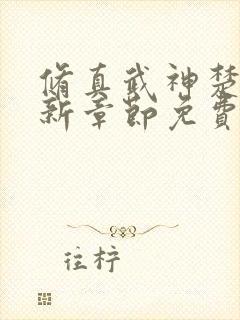 脩真武神楚
新章節免費
往柠